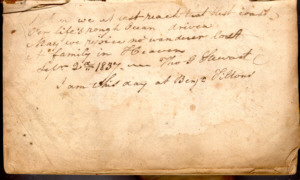 When we at last reach that blest coast
Our life's rough Ocean driven
May we rejoice no wanderer lost
A family in Heaven
Sept 1837 Tho Stewart
I am this day at Benj